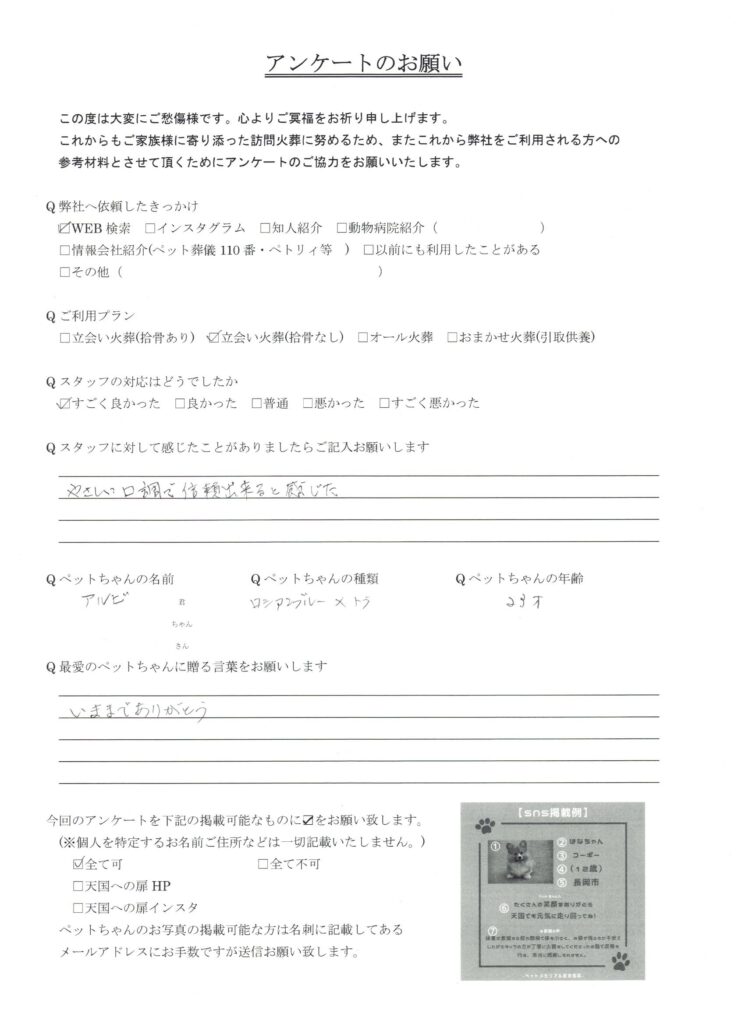 アンケートのお願い
この度は大変にご愁傷様です。心よりご冥福をお祈り申し上げます。
これからもご家族様に寄り添った訪問火葬に努めるため、またこれから弊社をご利用される方への
参考材料とさせて頂くためにアンケートのご協力をお願いいたします。
Q 弊社へ依頼したきっかけ
☑WEB 検索 □インスタグラム □知人紹介 □動物病院紹介（ ）
□情報会社紹介(ペット葬儀 110 番・ペトリィ等 ) □以前にも利用したことがある
□その他（ ）
Q ご利用プラン
□立会い火葬(拾骨あり) ☑立会い火葬(拾骨なし) □オール火葬 □おまかせ火葬(引取供養)
Q スタッフの対応はどうでしたか
☑すごく良かった □良かった □普通 □悪かった □すごく悪かった
Q スタッフに対して感じたことがありましたらご記入お願いします
やさしい口調で信頼出来ると感じた
Q ペットちゃんの名前 Q ペットちゃんの種類 Q ペットちゃんの年齢
アルビ 君 ロシアンブルー × トラ 23才
ちゃん
さん
Q 最愛のペットちゃんに贈る言葉をお願いします
いままでありがとう
今回のアンケートを下記の掲載可能なものに☑をお願い致します。
(※個人を特定するお名前ご住所などは一切記載いたしません。)
☑全て可 □全て不可
□天国への扉 HP
□天国への扉インスタ
ペットちゃんのお写真の掲載可能な方は名刺に記載してある
メールアドレスにお手数ですが送信お願い致します。
【sns掲載例】
① ② はなちゃん
③ コーギー
④ (12歳)
⑤ 長岡市
⑥ たくさんの笑顔をありがとう
天国でも元気に走り回ってね!
⑦